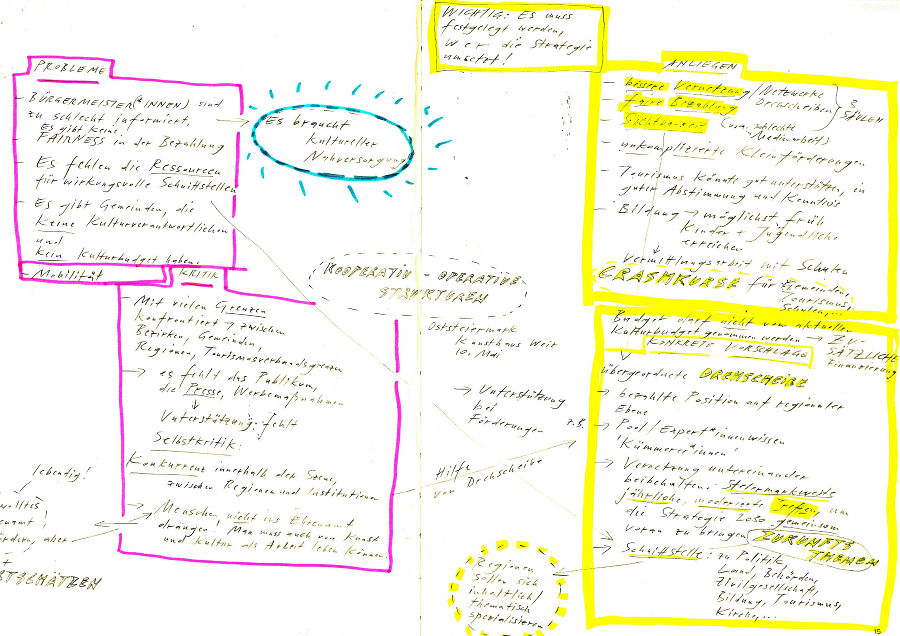 WICHTIG: Es muss
festgelegt werden,
wer die Strategie
umsetzt!
PROBLEME
- BÜRGERMEISTER(*INNEN) sind
zu schlecht informiert.
Es gibt keine
FAIRNESS in der Bezahlung
- Es fehlen die Ressourcen
für wirkungsvolle Schnittstellen
- Es gibt Gemeinden, die
keine Kulturverantwortlichen
und
kein Kulturbudget haben.
- Mobilität
Es braucht
kultureller
Nahversorgung
KRITIK
Mit vielen Grenzen
konfrontiert → zwischen
Bezirken, Gemeinden,
Regionen, Tourismusverbandsgrenzen
→ es fehlt das Publikum,
die Presse, Werbemaßnahmen
↓
Unterstützung fehlt
Selbstkritik:
Konkurrenz innerhalb der Szene,
zwischen Regionen und Institutionen
→ Menschen nicht ins Ehrenamt
drängen! Man muss auch von Kunst
und Kultur als Arbeit leben können.
lebendig!
wolltes
enamt,
ördern, aber
+
RTSCHÄTZEN
KOOPERATIV - OPERATIVE
STRUKTUREN
Oststeiermark
Kunsthaus Weiz
10. Mai
→ Unterstützung
bei
Förderungen
Hilfe
von Drehscheibe
z.B.
Regionen
sollen sich
inhaltlich/
thematisch
spezialisieren!
ANLIEGEN
- bessere Vernetzung/Netzwerke
Drehscheiben
- faire Bezahlung
- Sichtbarkeit (wg. schlechte
Medienarbeit)
3
SÄULEN
- unkomplizierte Kleinförderungen
- Tourismus könnte gut unterstützen, in
guter Abstimmung und Kenntnis
- Bildung → möglichst früh
Kinder + Jugendliche
erreichen
→ Vermittlungsarbeit mit Schulen
CRASHKURSE für Gemeinden,
Tourismus,
Schulen,...
Budget darf nicht vom aktuellen
Kulturbudget genommen werden → ZU-
SÄTZLICHE
Finanzierung
KONKRETE VORSCHLÄGE
übergeordnete DREHSCHEIBE
→ bezahlte Position auf regionaler
Ebene
→ Pool / Expert*innenwissen
'Kümmerer*innen'
→ Vernetzung untereinander
beibehalten: steiermarkweite
jährliche, moderierte Treffen, um
die Strategie 2030 gemeinsam
voran zu bringen ZUKUNFTS
THEMEN
→ Schnittstelle: zu Politik
Land, Behörden,
Zivilgesellschaft,
Bildung, Tourismus,
Kirche,...
15